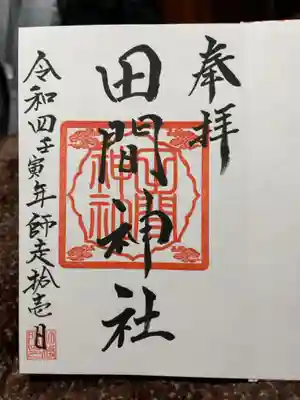 奉拝
田間神社
令和四壬寅年師走拾壱日
田間
神社